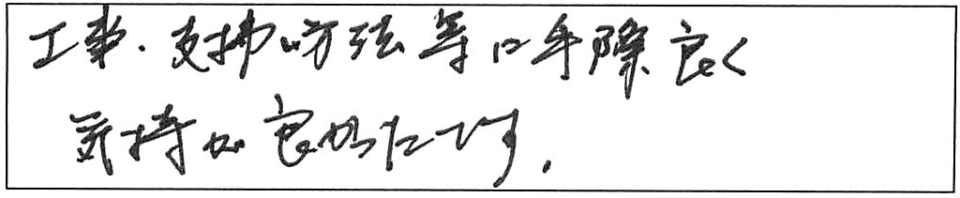 工事・支払い方法等に手際良く
気持が良かったです。